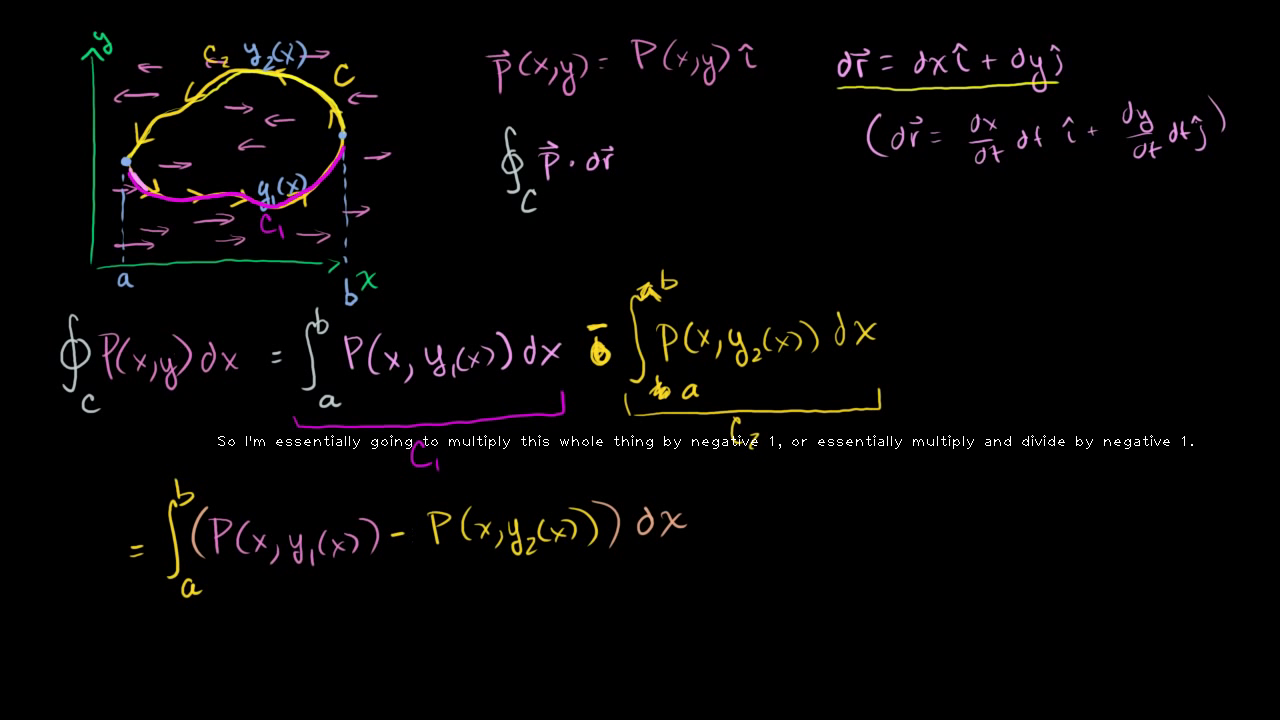 y
C₂ y₂(x)
C
y₁(x)
C₁
a
b
x
P⃗(x,y) = P(x,y) î
dr⃗ = dx î + dy ĵ
(dr⃗ = dx/dt dt î + dy/dt dt ĵ)
∮_C P⃗ · dr⃗
∮_C P(x,y) dx = ∫_a^b P(x, y₁(x)) dx - ∫_a^b P(x, y₂(x)) dx
C₁
C₂
So I'm essentially going to multiply this whole thing by negative 1, or essentially multiply and divide by negative 1.
= ∫_a^b (P(x, y₁(x)) - P(x, y₂(x))) dx